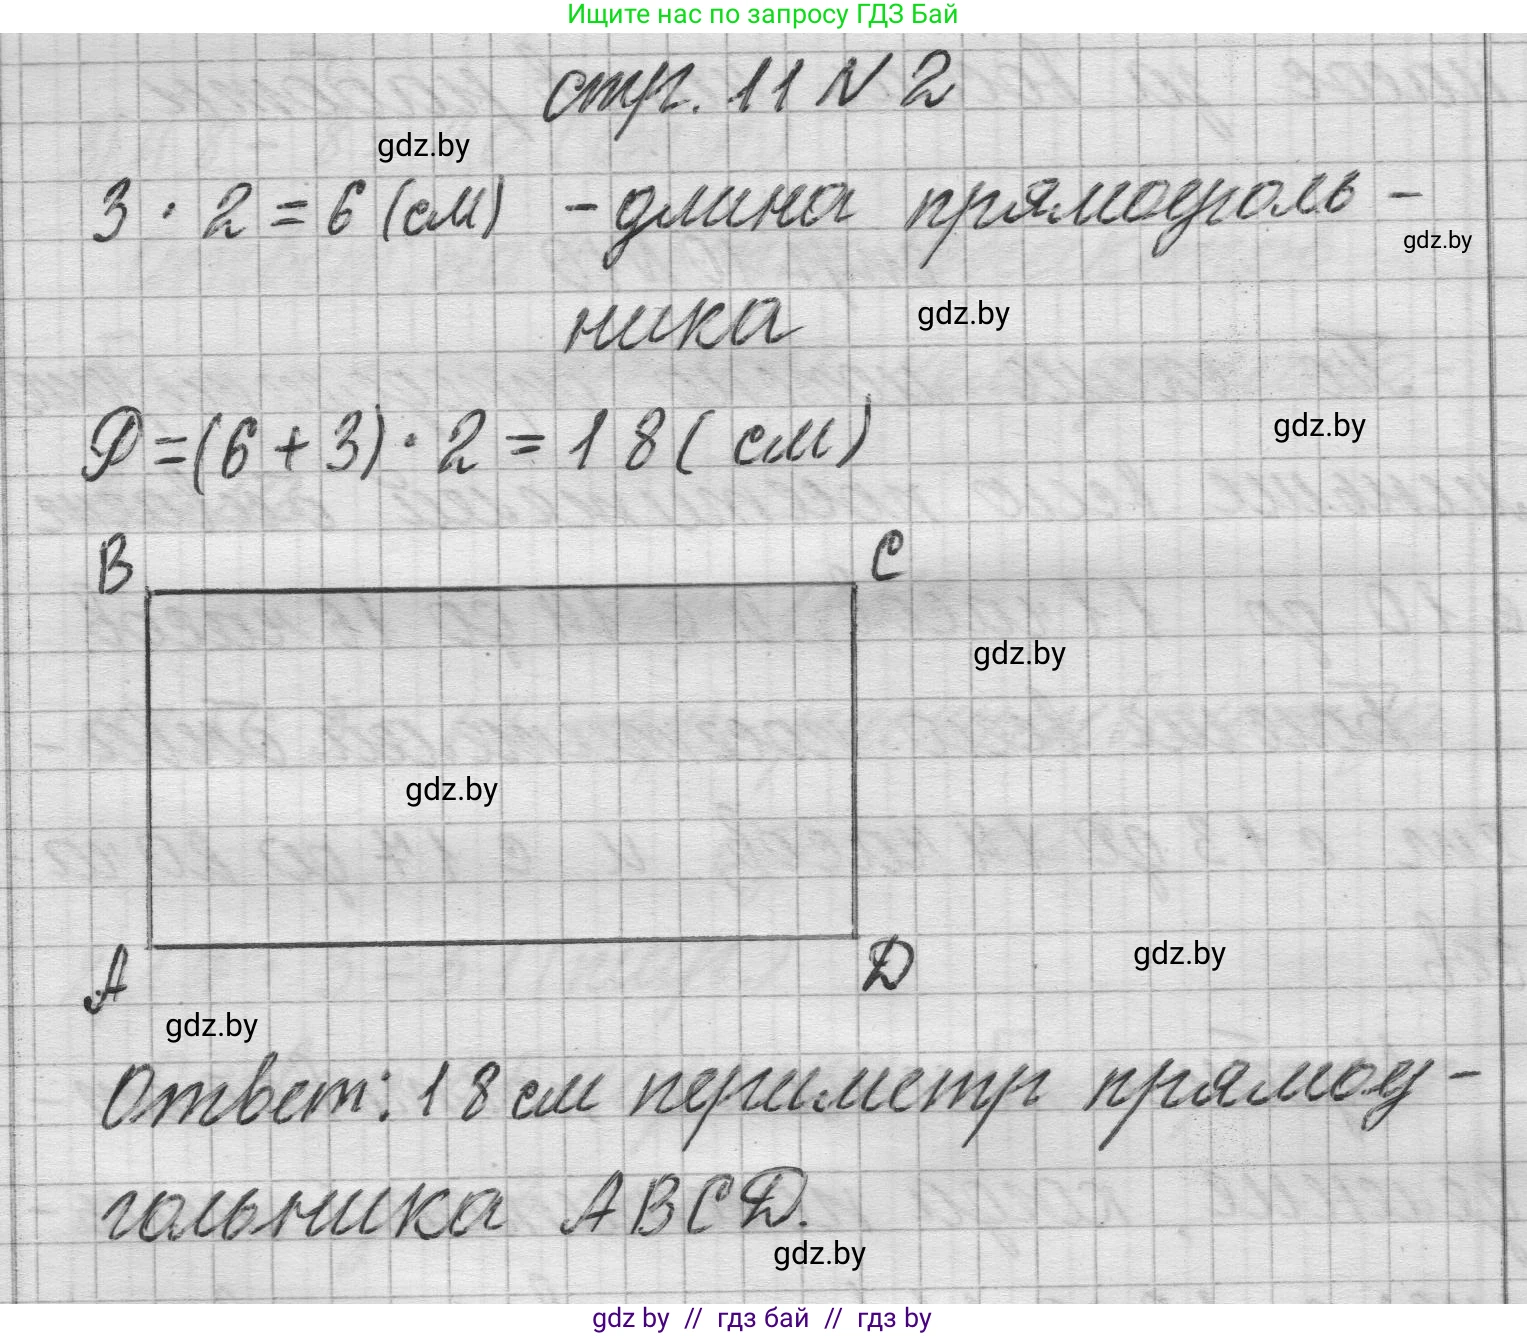 Ищите нас по запросу ГДЗ Бай
стр. 11 N 2
gdz.by
3 · 2 = 6 (см) - длина прямоуголь -
gdz.by
ника
gdz.by
P = (6 + 3) · 2 = 18 ( см)
gdz.by
B
C
gdz.by
gdz.by
A
D
gdz.by
gdz.by
Ответ: 18 см периметр прямоу -
гольника ABCD.
gdz.by
gdz by // гдз бай // гдз by